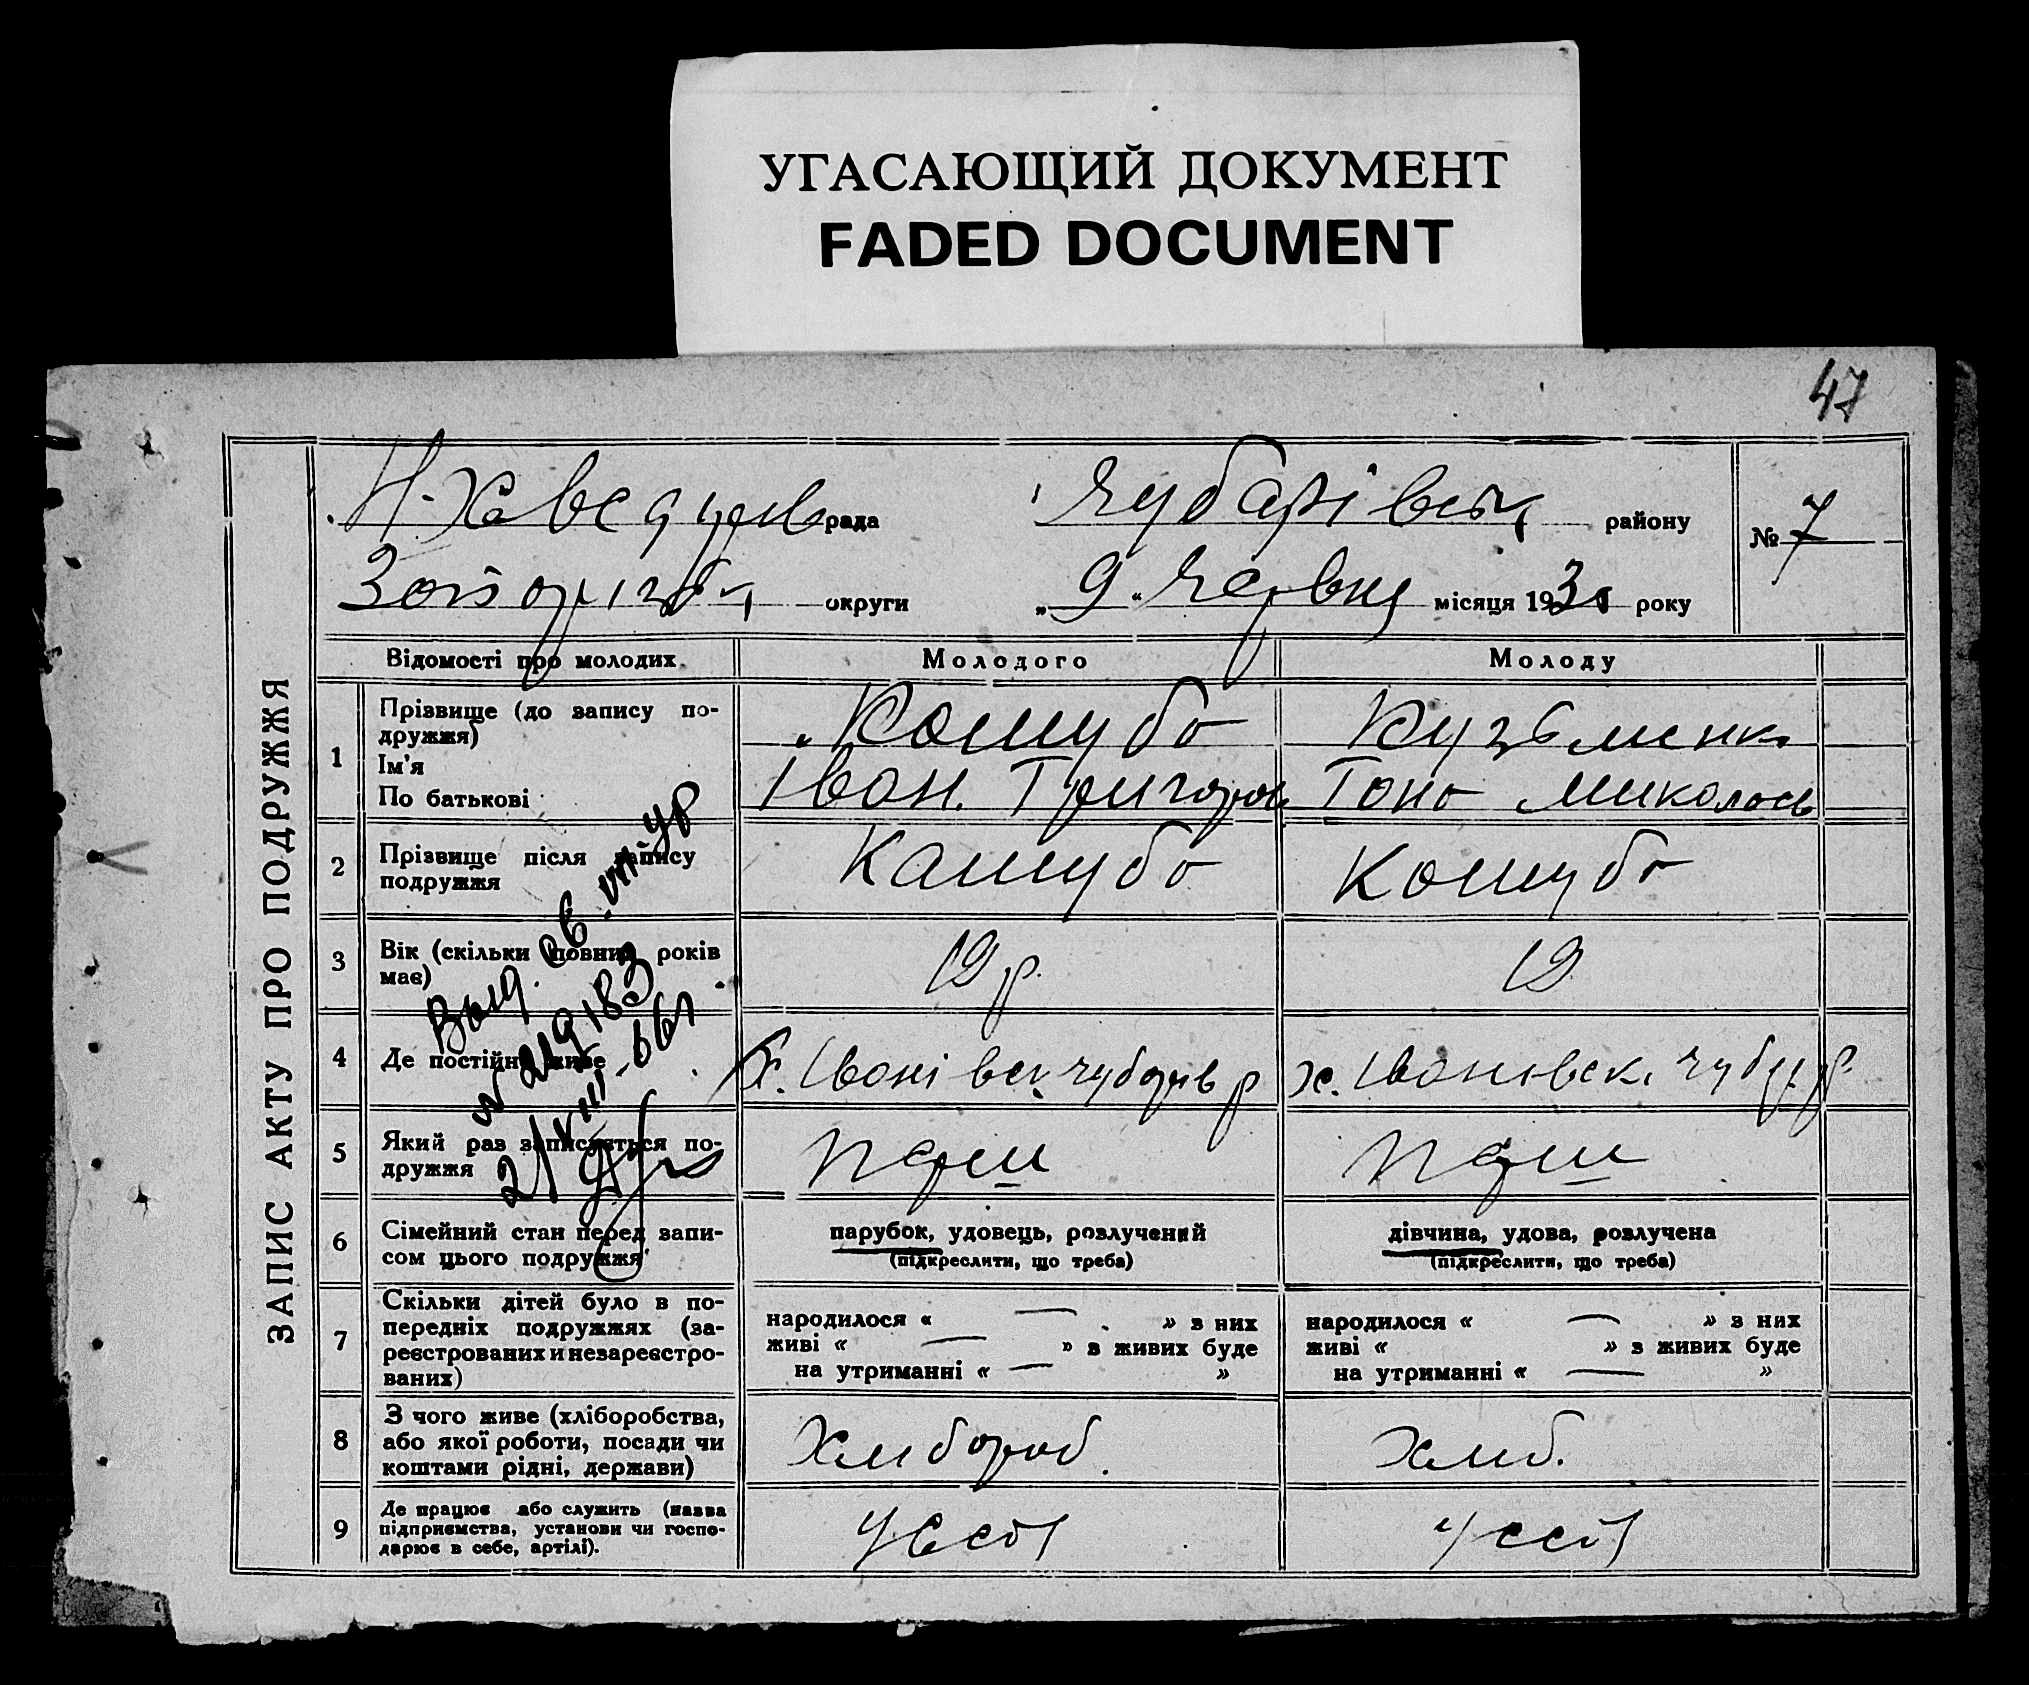 УГАСАЮЩИЙ ДОКУМЕНТ
FADED DOCUMENT
47
ЗАПИС АКТУ ПРО ПОДРУЖЖЯ
рада Чубарівськ району
№ 7
округи „ 9 “ Червня місяця 193 року
Відомості про молодих Молодого Молоду
1 Прізвище (до запису по-
дружжя)
Ім'я
По батькові
Кошубо
Іван Григоров
Кузьменк
Тоно Миколаєв
2 Прізвище після запису
подружжя
Кашубо
Кошубо
3 Вік (скільки повних років
має)
19 р.
19
4 Де постійно живе
х. Іванівськ чубарів р
х. Івановськ. чуб. р.
5 Який раз записується по-
дружжя
перш
перш
6 Сімейний стан перед запи-
сом цього подружжя
парубок, удовець, розлучений
(підкреслити, що треба)
дівчина, удова, розлучена
(підкреслити, що треба)
7 Скільки дітей було в по-
передніх подружжях (за-
реєстрованих и незареєстро-
ваних)
народилося « — » з них
живі « — » з живих буде
на утриманні « — »
народилося « — » з них
живі « » з живих буде
на утриманні « — »
8 З чого живе (хліборобства,
або якої роботи, посади чи
коштами рідні, держави)
Хлибороб.
хлиб.
9 Де працює або служить (назва
підприємства, установи чи госпо-
дарює в себе, артілі).
Выд. св.
№ 219183
2/VIII - 66